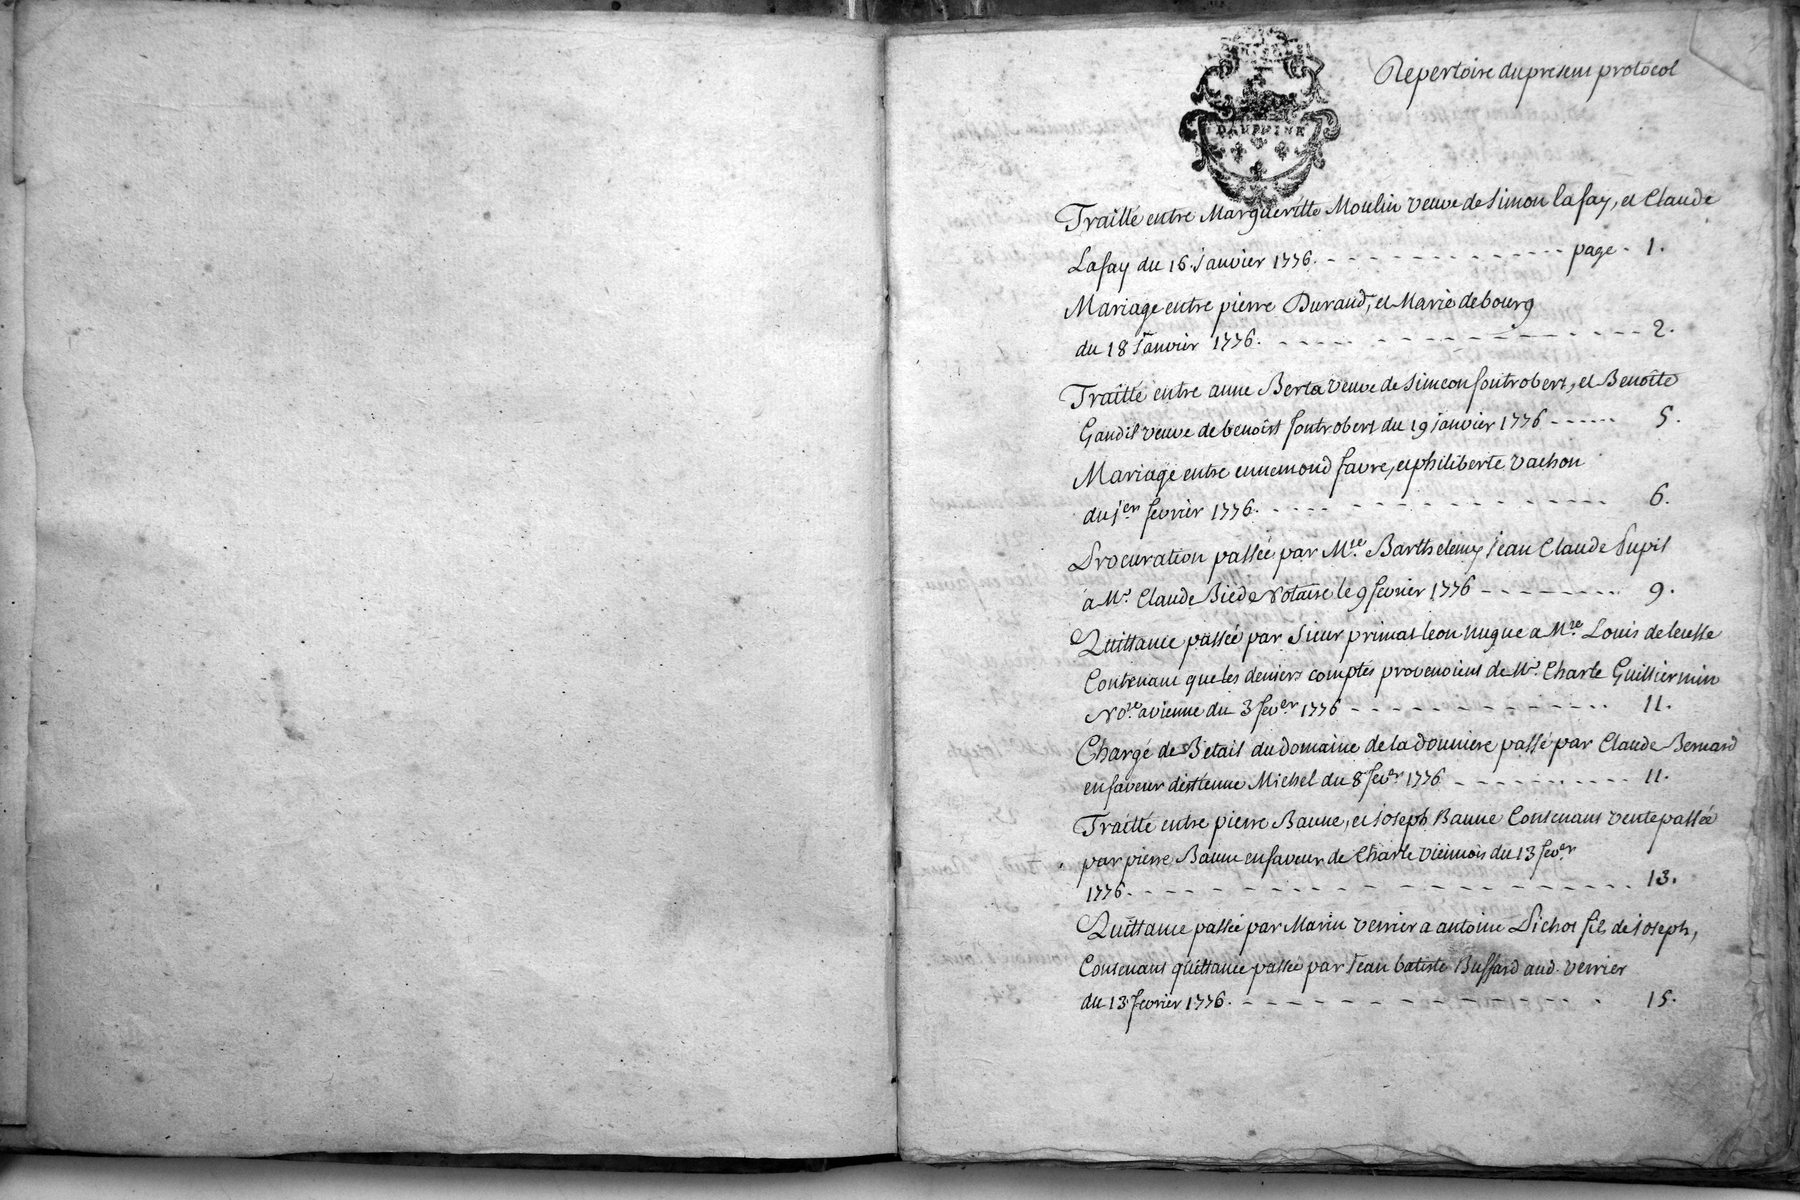 Repertoire du present protocol
DAUPHINE
Traitté entre Margueritte Moulin veuve de Simon Lafay, et Claude
Lafay du 16. Janvier 1776. page 1.
Mariage entre pierre Durand, et Marie debourg
du 18 Janvier 1776. 2.
Traitté entre anne Berta veuve de Simeon fontrobert, et Benoite
Gaudil veuve de benoist fontrobert du 19 janvier 1776 5.
Mariage entre ennemond favre, et philiberte vachon
du 1er fevrier 1776. 6.
Procuration passée par Mre. Barthelemy Jean Claude Pupil
a Mr. Claude Biéde Notaire le 9 fevrier 1776 9.
Quittance passée par Sieur primat leon hugue a Mre. Louis de leusse
Contenant que les deniers comptés provenoient de Mr. Charle Guillermin
Nore. a vienne du 3 fever. 1776 11.
Chargé de Betail du domaine de la douniere passé par Claude Bernard
en faveur d'estienne Michel du 8 fevr. 1776 11.
Traitté entre pierre Banne, et Joseph Banne Contenant vente passée
par pierre Banne en faveur de Charle viennois du 13 fever.
1776. 13.
Quittance passée par Marin verrier a antoine Pichot fils de Joseph,
Contenant quittance passée par Jean batiste Buffard aud. verrier
du 13 fevrier 1776. 15.